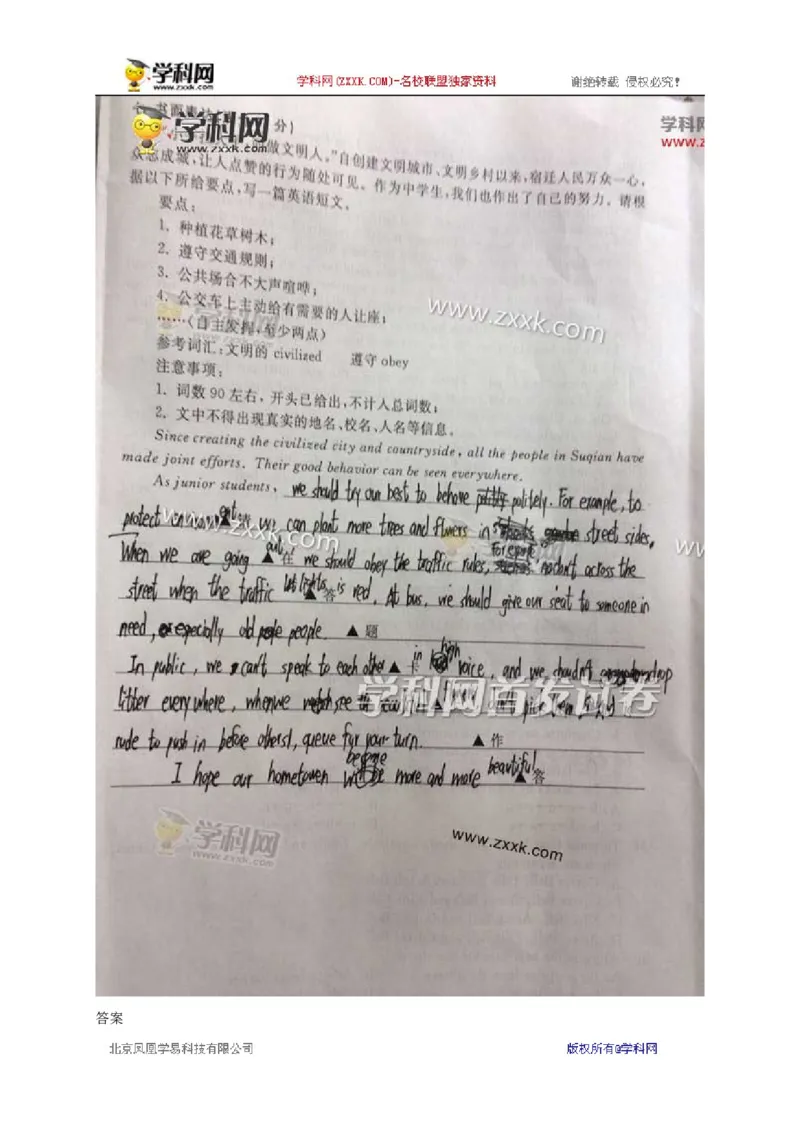 学科网
www.zxxk.com
学科网(ZXXK.COM)-名校联盟独家资料
谢绝转载 侵权必究!
书面表达
分)
学科网
www.zxxk.com
做文明人。"自创建文明城市、文明乡村以来,宿迁人民万众一心,
众志成城,让人点赞的行为随处可见。作为中学生,我们也作出了自己的努力。请根
据以下所给要点,写一篇英语短文。
要点:
1. 种植花草树木;
2. 遵守交通规则;
3. 公共场合不大声喧哗;
4. 公交车上主动给有需要的人让座;
……(自主发挥,至少两点)
www.zxxk.com
参考词汇:文明的 civilized 遵守 obey
注意事项:
1. 词数 90 左右,开头已给出,不计入总词数;
2. 文中不得出现真实的地名、校名、人名等信息。
Since creating the civilized city and countryside, all the people in Suqian have
made joint efforts. Their good behavior can be seen everywhere.
As junior students, we should try our best to behave politely. For example, to
protect we can plant more trees and flwers in street sides.
When we are going out ▲ 在 we should obey the traffic rules, For example don't across the
street when the traffic lights ▲ 答 is red. At bus, we should give our seat to someone in
need, especially old people. ▲ 题
In public, we can't speak to each other ▲ 卡 in high voice, and we shouldn't drop
litter every where, when we see
学科网首发试卷
rude to push in before others, queue for your turn. ▲ 作
I hope our hometowen become more and more beautiful ▲ 答
学科网
www.zxxk.com
www.zxxk.com
答案
北京凤凰学易科技有限公司
版权所有@学科网